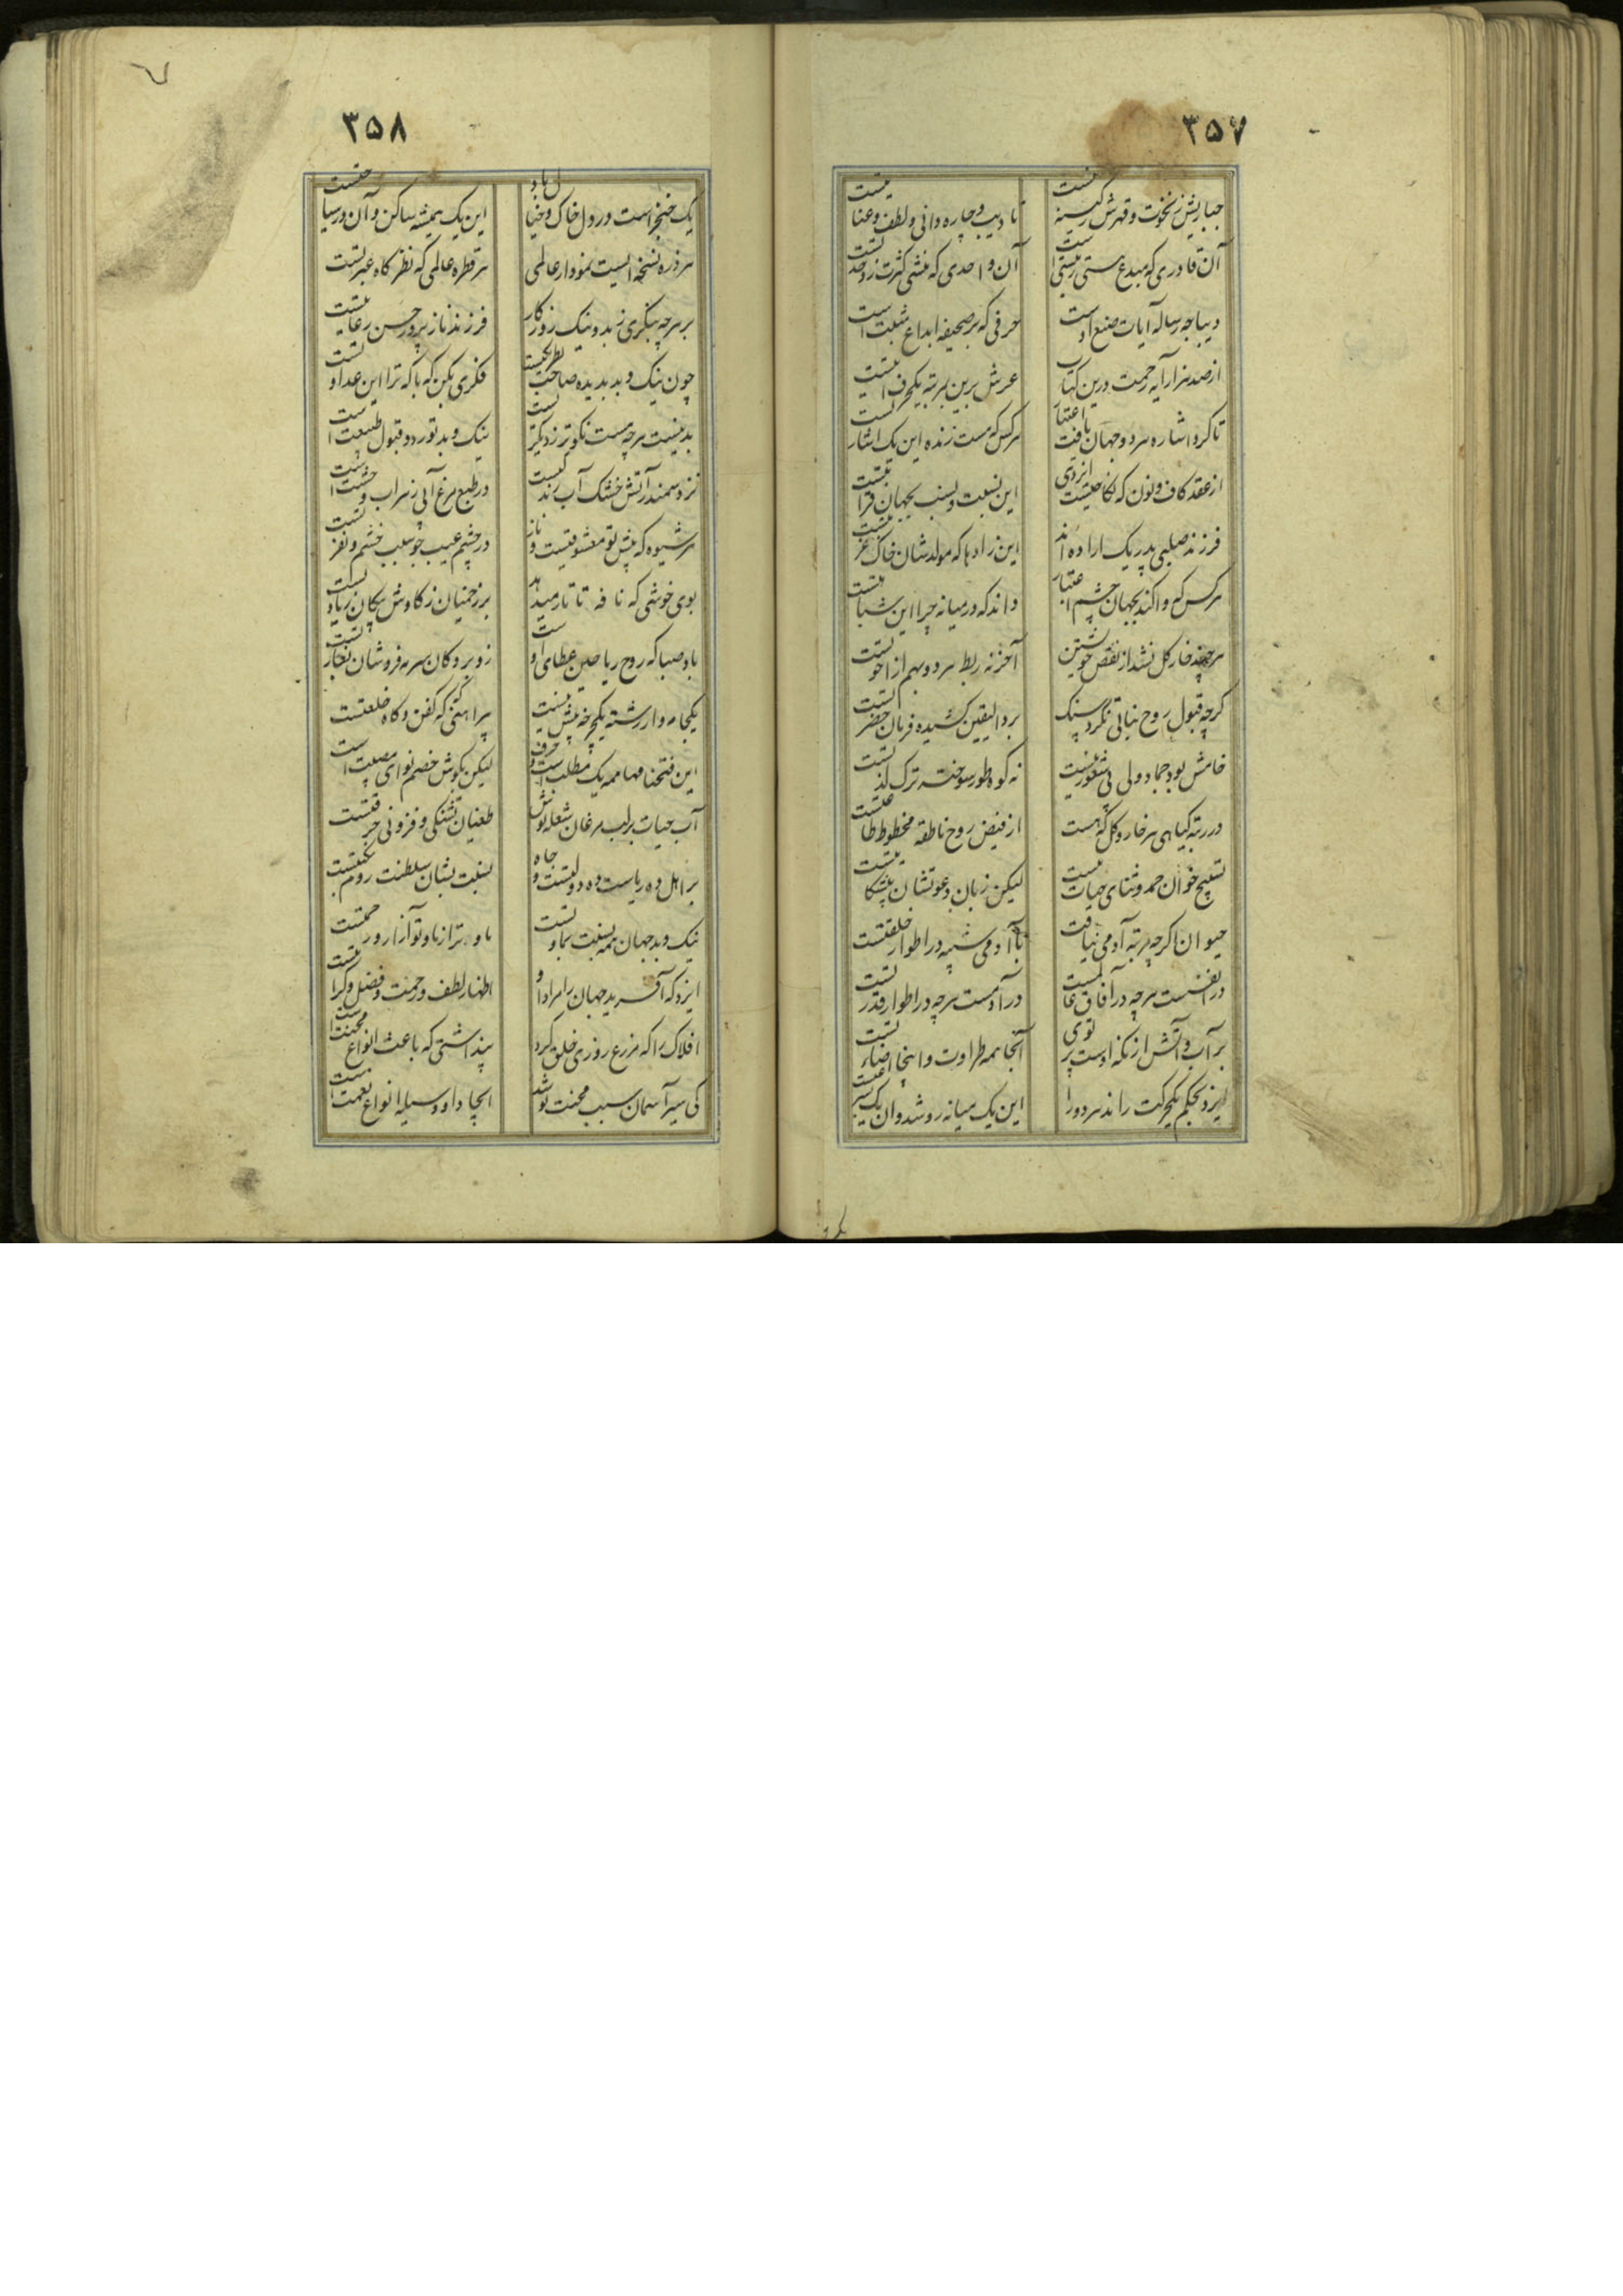 ۳۵۷
جباریش ز نخوت و قهرش ز کینه نیست
تادیب و چاره دانی و لطف و عنایتست
آن قادری که مبدع هستی ز نیستی است
آن واحدی که منشی کثرت ز وحدتست
دیباجه رساله آیات صنع اوست
حرفی که بر صحیفه ابداع مثبت است
از صد هزار آیه رحمت درین کتاب
عرش برین بمرتبه یکحرف آیتست
تا کرد اشاره هر دو جهان یافت اعتبار
هر کس که هست زنده این یک اشارتست
از عقد کاف و نون که نکاحیست ایزدی
این نسبت و نسب بجهان قرابتست
فرزند صلبی پدر یک اراده اند
این زادها که مولدشان خاک غربتست
هر کس که واکند بجهان چشم اعتبار
داند که در میانه چرا این شباهتست
هر چند خار گل نشد از نقص خویشتن
آخر نه ربط هر دو بهم از اخوتست
کرچه قبول روح نباتی نکرد سنک
برد الیقین کشیده فرمان حضرتست
خامش بود جماد ولی بی شعور نیست
نه کوه طور سوخته ترک لذتست
در رتبه کیاهی هر خار و کل که هست
از فیض روح ناطقه محظوظ طاعتست
تسبیح خوان حمد و ثنای حیات نیست
لیکن زبان دعوتشان بیشکایتست
حیوان اکرچه مرتبه آدمی نیافت
با آدمی شبیه در اطوار خلقتست
در انفسست هرچه در آفاق عالمست
در آدمست هرچه در اطوار قدرتست
بر آب و آتش از نکه اوست پرتوی
آنجا همه طراوت و اینجا اضاءتست
ایزد بحکم یکحرکت راند هر دو را
این یک میانه رو شد و آن یک بسرعتست
۳۵۸
یک خنجر است در دل خاک و خیال باد
این یک همیشه ساکن و آن در سیاحتست
هر ذره نسخه ایست نمودار عالمی
هر قطره عالمی که نظرکاه عبرتست
بر هرچه بنکری ز بد و نیک روزکار
فرزند نازپرور حسن رعایتست
چون نیک و بد بدیده صاحب نظر یکیست
فکری بکن که با که ترا این عداوتست
بد نیست هرچه هست نکوتر ز دیکریست
نیک و بد تو رد و قبول طبیعت است
نزد سمندر آتش خشک آب زندکیست
در طبع مرغ آبی زهر آب وحشت است
هر شیوه که پیش تو معشوقیست و ناز
در چشم عیب جو سبب خشم و نفرتست
بوی خوشی که نافه تاتار میدهد
بر زخمیان ز کاوش پیکان زیادتست
باد صبا که روح ریاحین عطای اوست
زو بر دکان سرمه فروشان بغارتست
یکجامه وار رشته یکچرخه بیش نیست
پیراهنی که کفن و کاه خلعتست
این فتحنامها همه یک مطلب است و حرف
لیکن بکوش خصم نوای مصیبت است
آب حیات بر لب مرغان شعله نوش
طغیان تشنکی و فزونی حرقتست
بر اهل ده ریاست ده دولتست و جاه
نسبت بشان سلطنت روم نکبتست
نیک و بد جهان همه نسبت بما و تست
ما و تو تر از ما و تو آنرا رحمتست
ایزد که آفرید جهان را مراد او
اظهار لطف و رحمت و فضل و کرامتست
افلاک را که مزرع روزی خلق کرد
پنداشتی که باعث انواع محنت است
کی سیر آسمان سبب محنت تو شد
ایجاد او وسیله انواع نعمت است